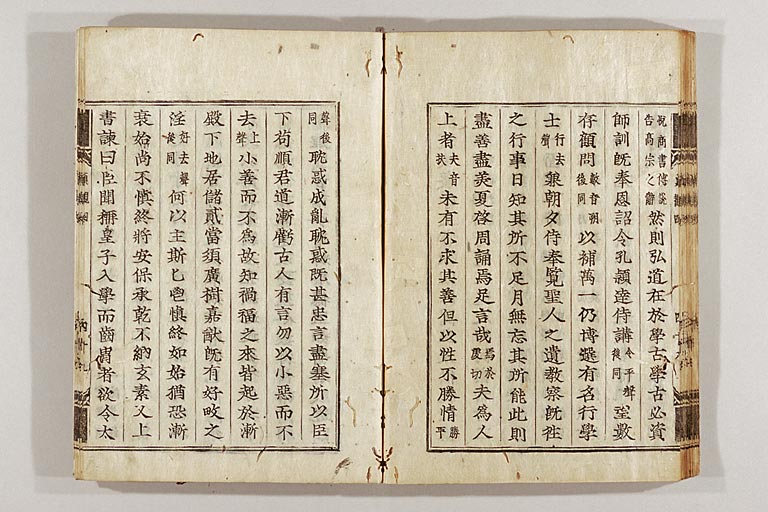 悅商書傅說告高宗之辭然則弘道在於學古學古必資
師訓旣奉恩詔令孔穎達侍講令平聲後同望數
存顧問數音朔後同以補萬一仍博選有名行學
士行去聲兼朝夕侍奉覽聖人之遺教察旣徃
之行事日知其所不足月無忘其所能此則
盡善盡美夏啓周誦焉足言哉焉於虔切夫爲人
上者夫音扶未有不求其善但以性不勝情勝平
聲後同耽惑成亂耽惑旣甚忠言盡塞所以臣
下苟順君道漸虧古人有言勿以小惡而不
去上聲小善而不爲故知禍福之來皆起於漸
殿下地居儲貳當須廣樹嘉猷旣有好畋之
淫好去聲後同何以主斯匕鬯愼終如始猶恐漸
衰始尚不愼終將安保承乾不納玄素又上
書諫曰臣聞稱皇子入學而齒胄者欲令太